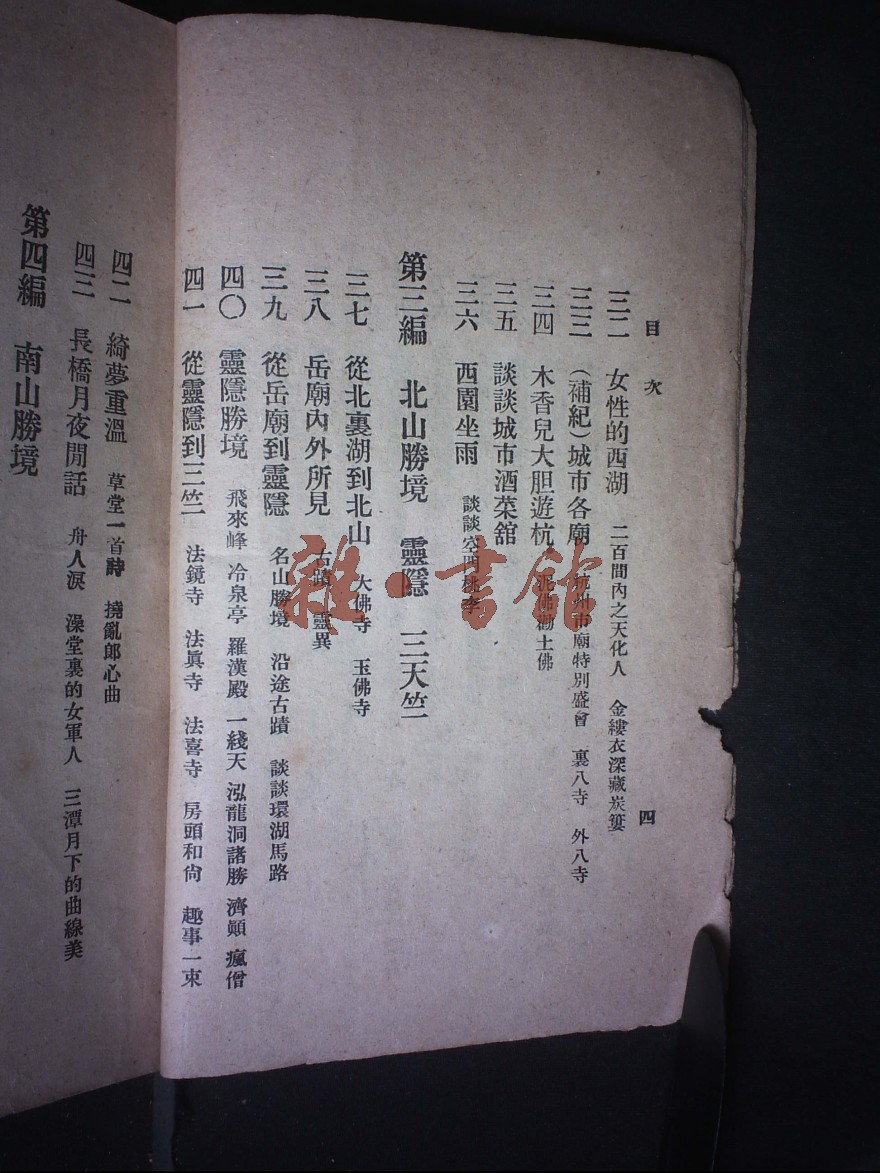 目次
四
三二 女性的西湖 二百間內之天化人 金縷衣深藏炭簍
三三 (補紀)城市各廟 杭州市廟特別盛會 裏八寺 外八寺
三四 木香兒大胆遊杭 泥佛勸土佛
三五 談談城市酒菜舘
三六 西園坐雨 談談空門桃李
第三編 北山勝境 靈隱 三天竺
三七 從北裏湖到北山 大佛寺 玉佛寺
三八 岳廟內外所見 古蹟 靈異
三九 從岳廟到靈隱 名山勝境 沿途古蹟 談談環湖馬路
四〇 靈隱勝境 飛來峰 冷泉亭 羅漢殿 一綫天 泓龍洞諸勝 濟顛 瘋僧
四一 從靈隱到三竺 法鏡寺 法眞寺 法喜寺 房頭和尙 趣事一束
四二 綺夢重溫 草堂一首詩 撓亂郎心曲
四三 長橋月夜閒話 舟人淚 澡堂裏的女軍人 三潭月下的曲線美
第四編 南山勝境
雜·書館